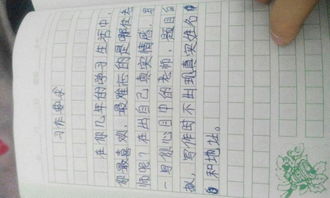 习作要求
在你几年的学习生活中,
你最喜欢、最难忘的是哪位老
师呢?写出自己真实情感,
一写你心目中的老师,题目自
拟,写作时不出现真实姓名
和地址。